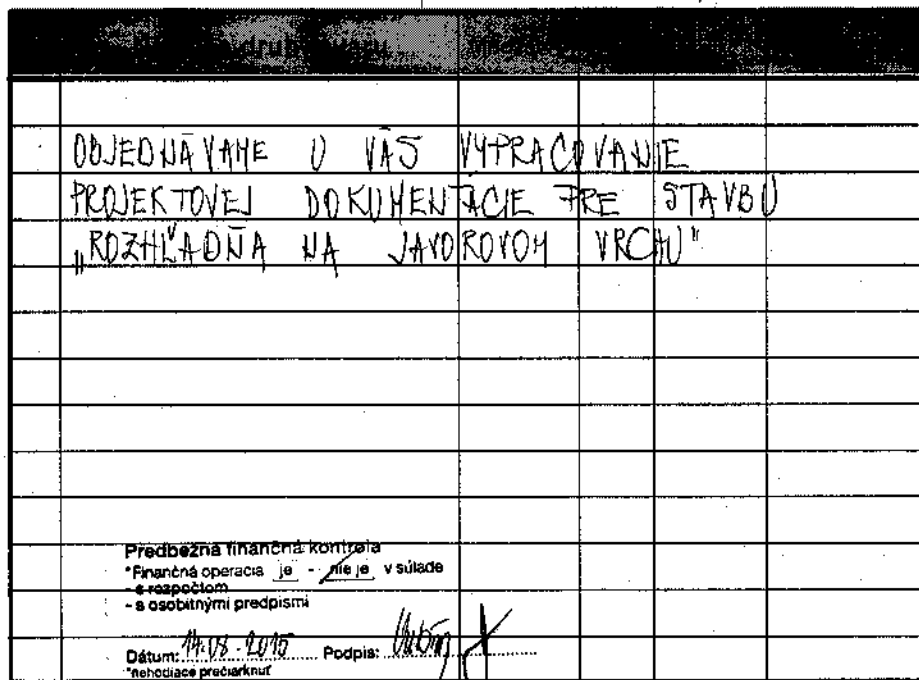 OBJEDNÁVAME U VÁS VYPRACOVANIE
PROJEKTOVEJ DOKUMENTÁCIE PRE STAVBU
„ROZHĽADŇA NA JAVOROVOM VRCHU"
Predbežná finančná kontrola
*Finančná operácia je - nie je v súlade
- s rozpočtom
- s osobitnými predpismi
Dátum: 14.08.2015 Podpis:
*nehodiace prečiarknuť